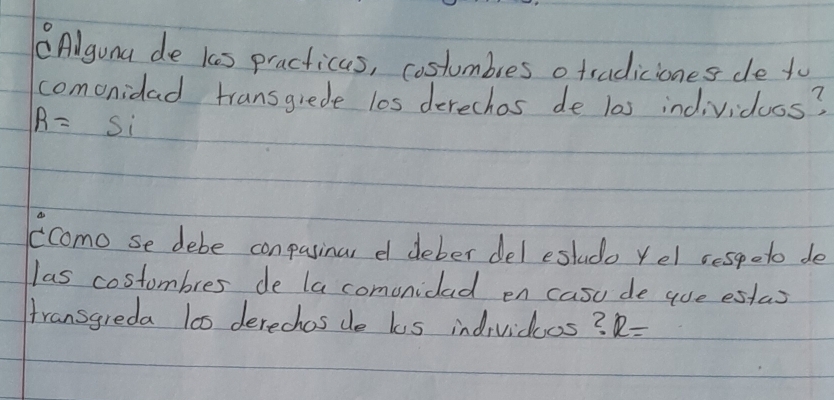 ¿Alguna de las practicas, costumbres o tradiciones de tu
comonidad transgrede los derechos de los individuos?
R= Si
¿Como se debe conpaginar el deber del estado y el respeto de
las costombres de la comonidad en caso de que estas
transgreda los derechos de los individuos? R=